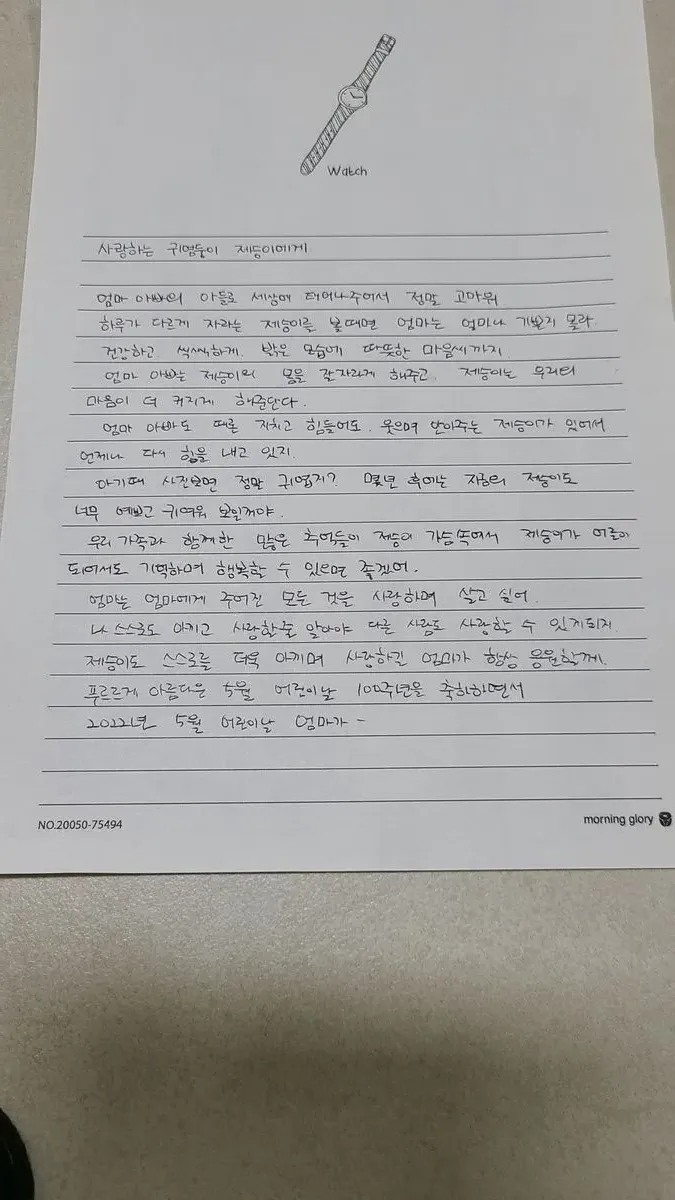 Watch
사랑하는 귀염둥이 제등이에게
엄마 아빠의 아들로 세상에 태어나주어서 정말 고마워
하루가 다르게 자라는 제등이를 볼때면 엄마는 얼마나 기쁜지 몰라
건강하고 씩씩하게. 밝은 모습에 따뜻한 마음씨까지.
엄마 아빠는 제등이의 몸을 잘자라게 해주고. 제등이는 우리의
마음이 더 커지게 해준단다.
엄마 아빠도 때론 지치고 힘들어도. 웃으며 안아주는 제등이가 있어서
언제나 다시 힘을 내고 있지.
아기때 사진보면 정말 귀엽지? 몇년 후에는 지금의 제등이도
너무 예쁘고 귀여워 보일꺼야.
우리가족과 함께한 많은 추억들이 제등이 가슴속에서 제등이가 어른이
되어서도 기억하며 행복할 수 있으면 좋겠어.
엄마는 엄마에게 주어진 모든 것을 사랑하며 살고 싶어.
나 스스로도 아끼고 사랑할줄 알아야 다른 사람도 사랑할 수 있게되지.
제등이도 스스로를 더욱 아끼며 사랑하길 엄마가 항상 응원할께.
푸르르게 아름다운 5월 어린이날 100주년을 축하하면서
2022년 5월 어린이날 엄마가 -
NO.20050-75494
morning glory